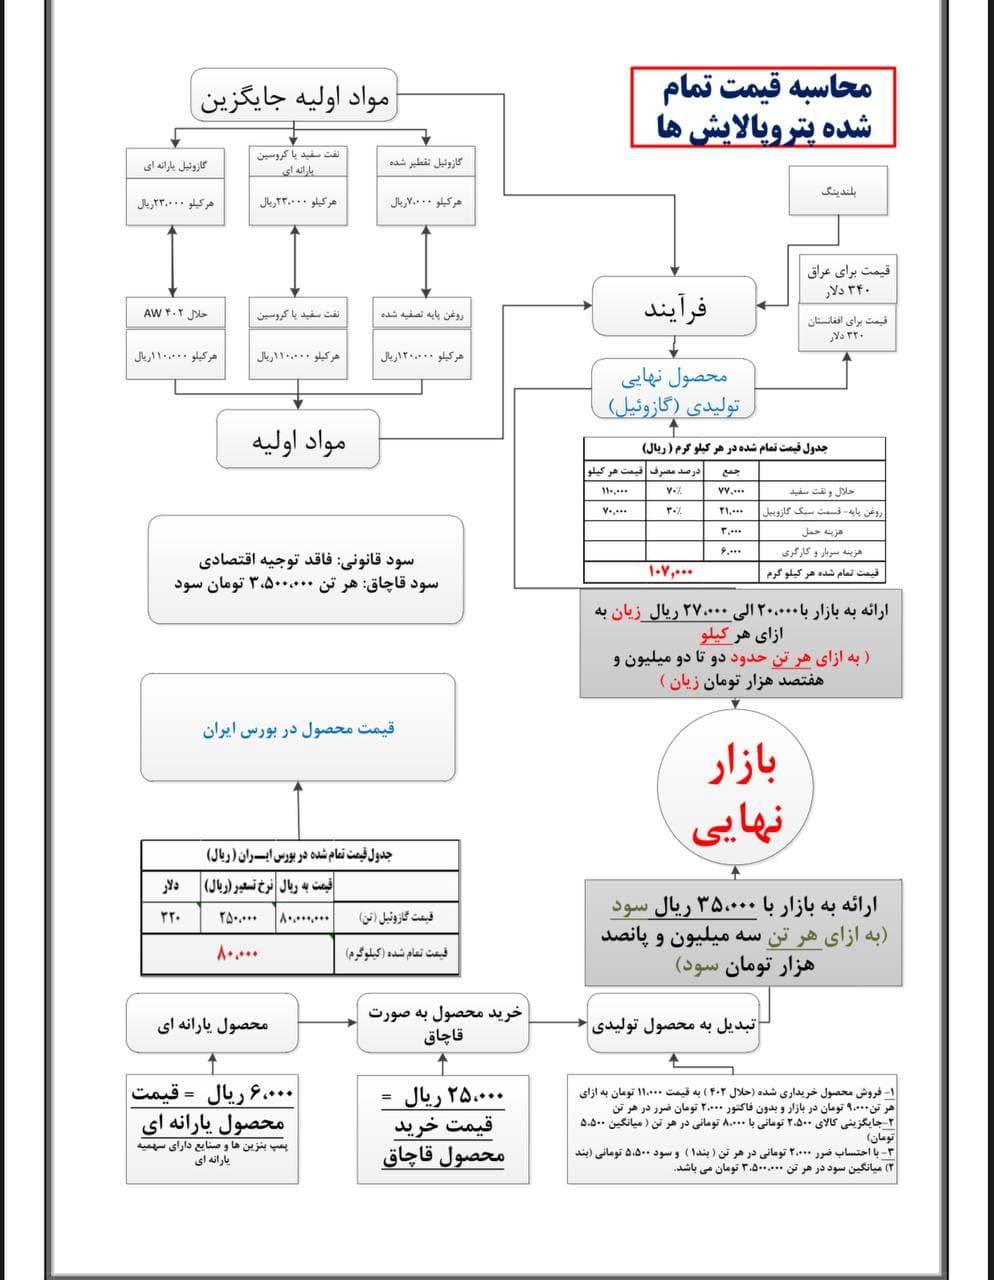 محاسبه قیمت تمام
شده پتروپالایش ها
مواد اولیه جایگزین
گازوئیل تقطیر شده
هرکیلو ۷،۰۰۰ریال
نفت سفید یا کروسین
یارانه ای
هرکیلو ۲۳،۰۰۰ریال
گازوئیل یارانه ای
هرکیلو ۲۳،۰۰۰ریال
بلندینگ
قیمت برای عراق
۳۴۰ دلار
قیمت برای افغانستان
۳۲۰ دلار
فرآیند
روغن پایه تصفیه شده
هرکیلو ۱۲۰،۰۰۰ریال
نفت سفید یا کروسین
هرکیلو ۱۱۰،۰۰۰ریال
حلال ۴۰۲ AW
هرکیلو ۱۱۰،۰۰۰ریال
مواد اولیه
محصول نهایی
تولیدی (گازوئیل)
جدول قیمت تمام شده در هر کیلو گرم ( ریال)
جمع درصد مصرف قیمت هر کیلو
حلال و نفت سفید ۷۷،۰۰۰ ۷۰٪ ۱۱۰،۰۰۰
روغن پایه- قسمت سبک گازوییل ۲۱،۰۰۰ ۳۰٪ ۷۰،۰۰۰
هزینه حمل ۳،۰۰۰
هزینه سربار و کارگری ۶،۰۰۰
قیمت تمام شده هر کیلو گرم ۱۰۷,۰۰۰
سود قانونی: فاقد توجیه اقتصادی
سود قاچاق: هر تن ۳،۵۰۰،۰۰۰ تومان سود
ارائه به بازار با۲۰،۰۰۰ الی ۲۷،۰۰۰ ریال زیان به
ازای هر کیلو
( به ازای هر تن حدود دو تا دو میلیون و
هفتصد هزار تومان زیان )
بازار
نهایی
قیمت محصول در بورس ایران
جدول قیمت تمام شده در بورس ایـــران ( ریال)
قیمت به ریال نرخ تسعیر (ریال) دلار
قیمت گازوئیل (تن) ۸۰،۰۰۰،۰۰۰ ۲۵۰،۰۰۰ ۳۲۰
قیمت تمام شده (کیلوگرم) ۸۰،۰۰۰
ارائه به بازار با ۳۵،۰۰۰ ریال سود
(به ازای هر تن سه میلیون و پانصد
هزار تومان سود)
تبدیل به محصول تولیدی
خرید محصول به صورت
قاچاق
محصول یارانه ای
۱- فروش محصول خریداری شده (حلال ۴۰۲) به قیمت ۱۱،۰۰۰ تومان به ازای
هر تن۹،۰۰۰ تومان در بازار و بدون فاکتور ۲،۰۰۰ تومان ضرر در هر تن
۲-جایگزینی کالای ۲،۵۰۰ تومانی با ۸،۰۰۰ تومانی در هر تن ( میانگین ۵،۵۰۰
تومان)
۳- با احتساب ضرر ۲،۰۰۰ تومانی در هر تن ( بند۱) و سود ۵،۵۰۰ تومانی (بند
۲) میانگین سود در هر تن ۳،۵۰۰،۰۰۰ تومان می باشد.
۲۵،۰۰۰ ریال =
قیمت خرید
محصول قاچاق
۶،۰۰۰ ریال = قیمت
محصول یارانه ای
پمپ بنزین ها و صنایع دارای سهمیه
یارانه ای